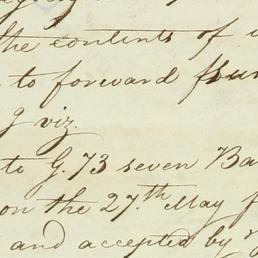 the contents of
to forward
g viz.
to G. 73 seven Ba
on the 27.th May f
and accepted by